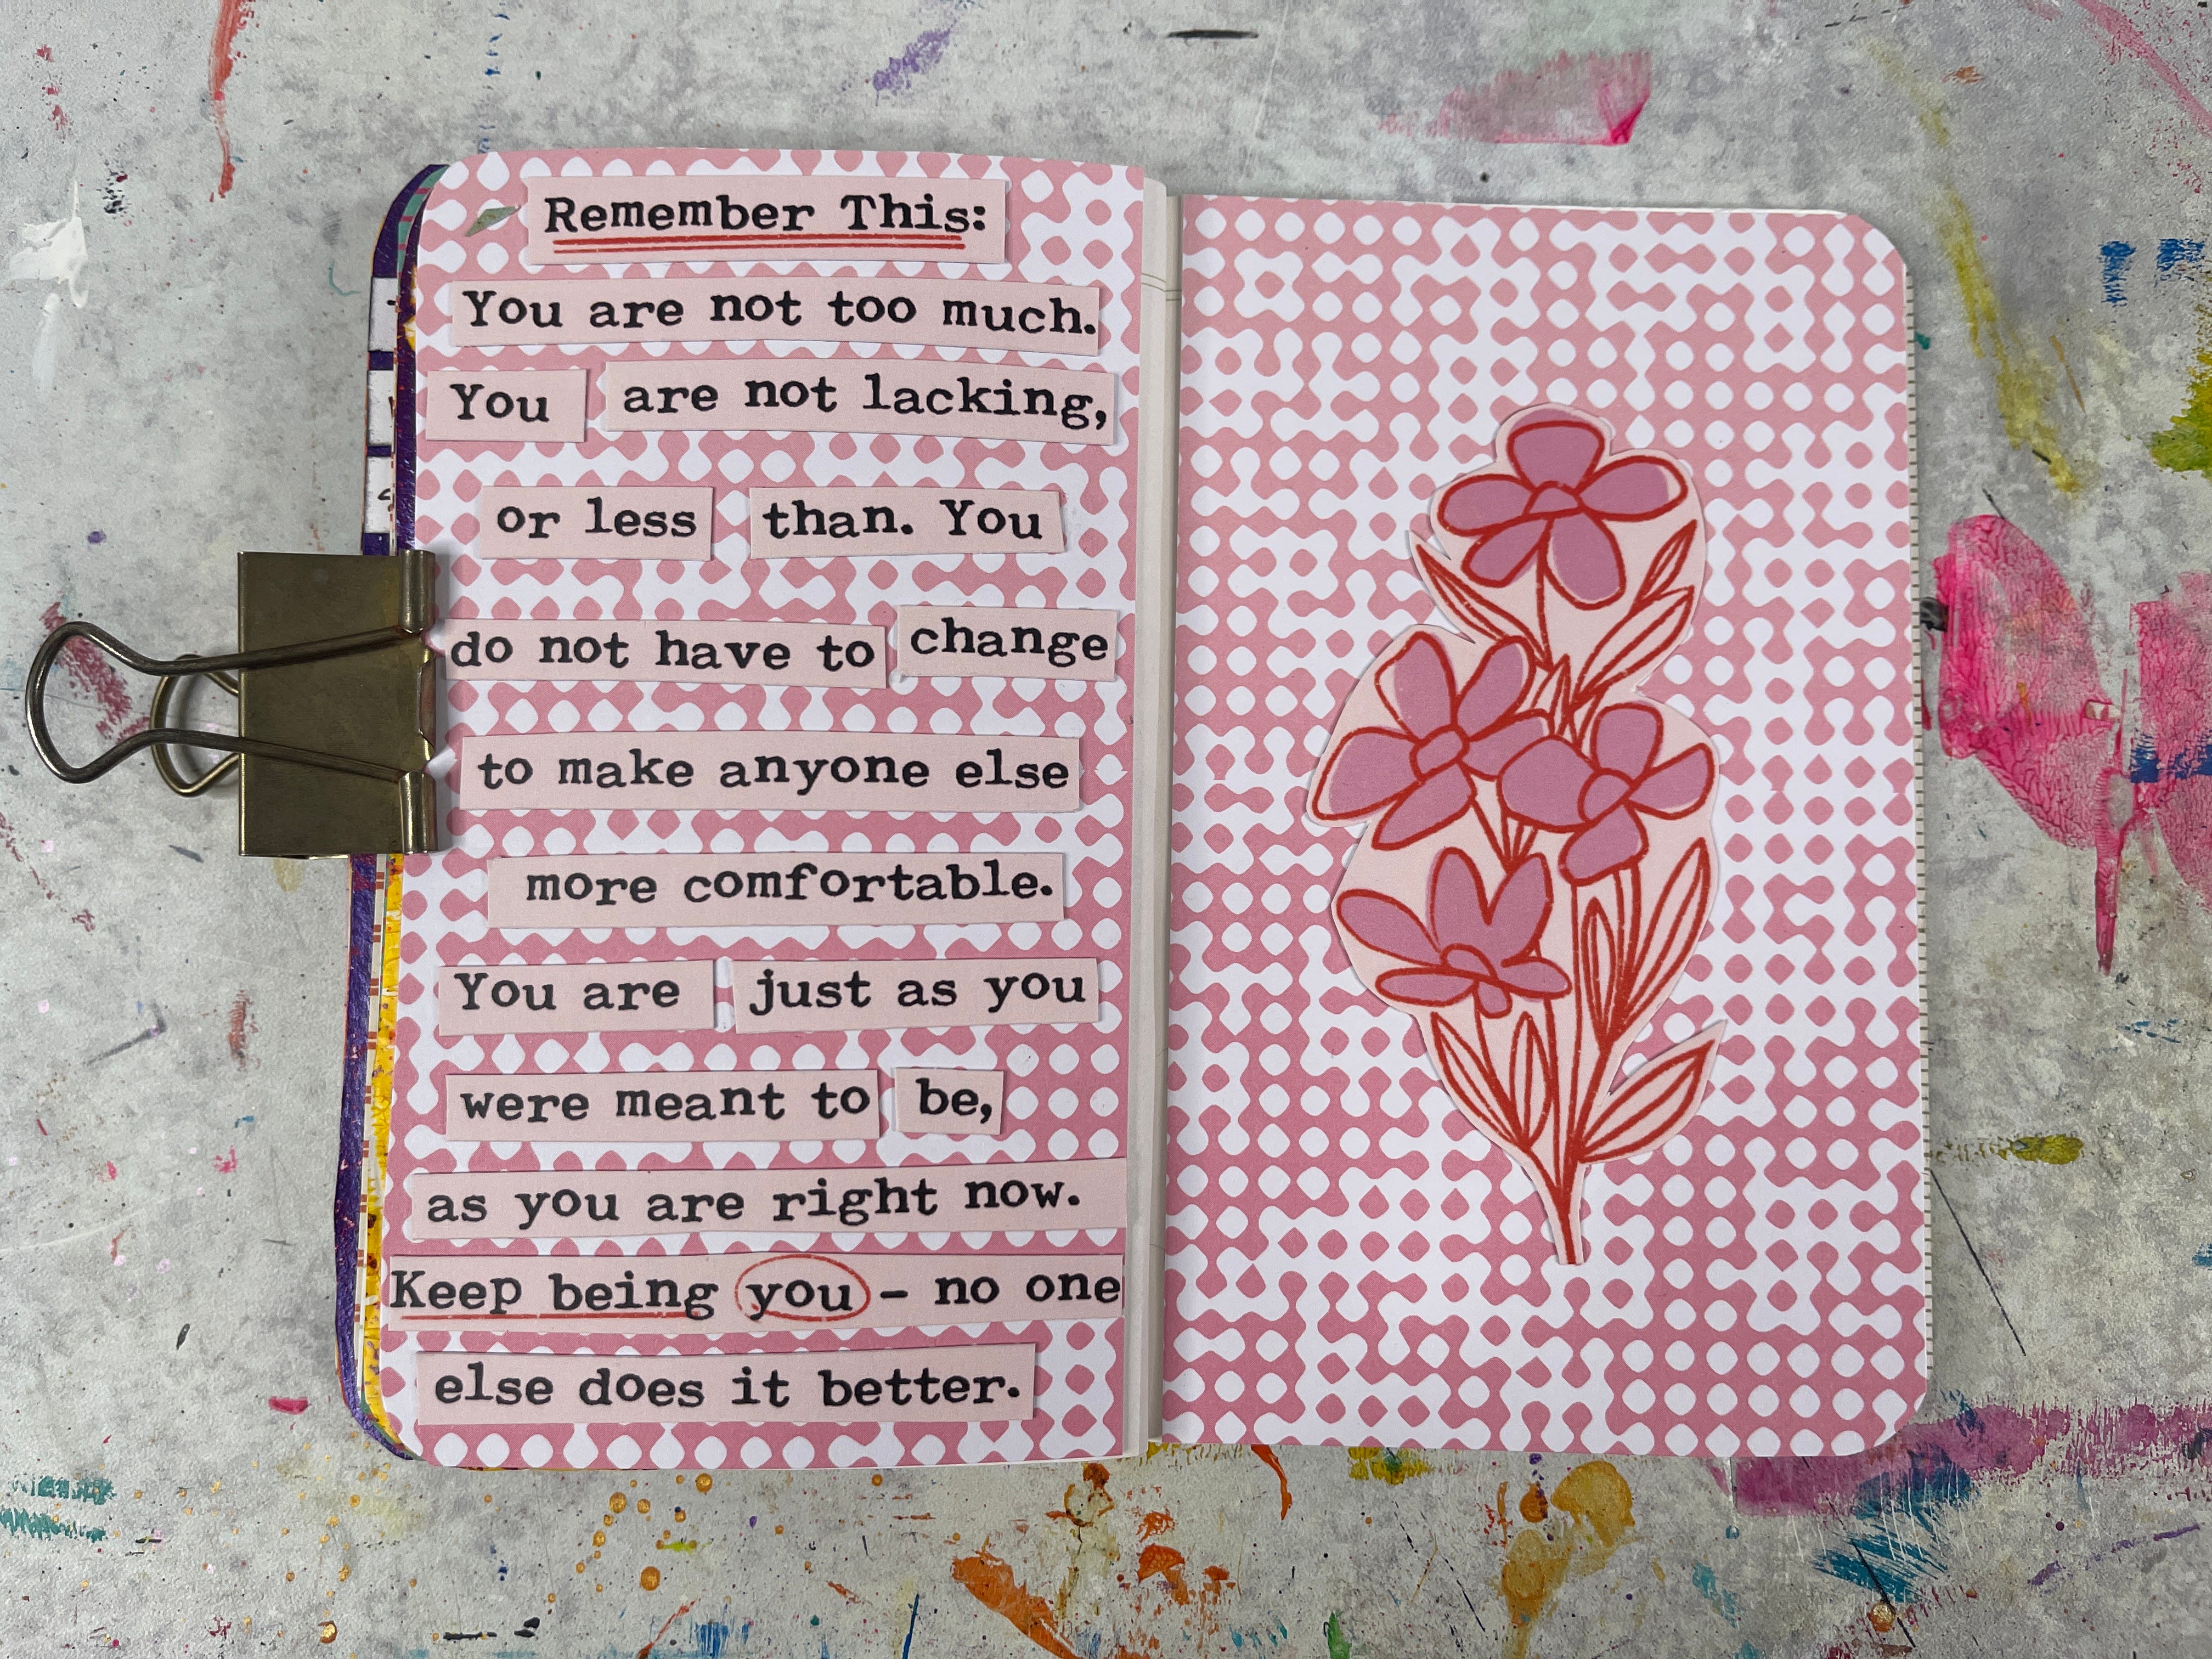 Remember This:
You are not too much.
You are not lacking,
or less than. You
do not have to change
to make anyone else
more comfortable.
You are just as you
were meant to be,
as you are right now.
Keep being you - no one
else does it better.